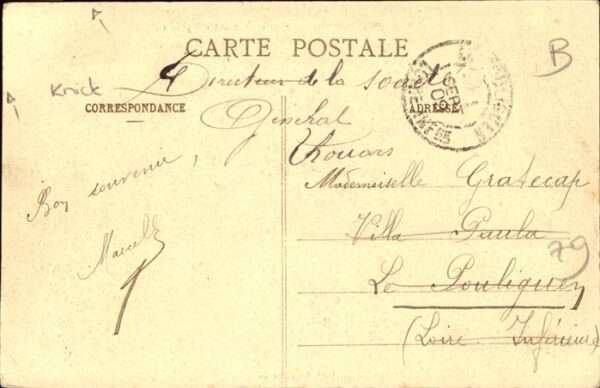 CARTE POSTALE
Krick
B
Directeur de la société
CORRESPONDANCE
ADRESSE
SEPT
09
Général
Thouars
Bon souvenir,
Mademoiselle Gratecap
Marcel
Villa Paula
79
Le Pouliguen
(Loire Inférieure)